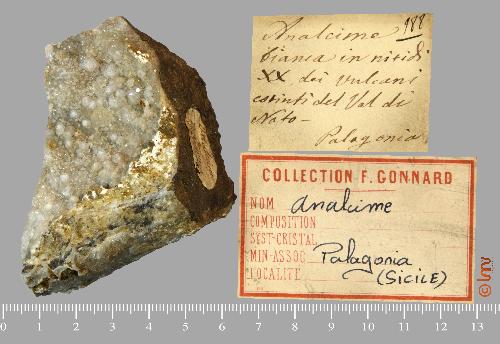 188
Analcime
bianca in nitidi
XX dei vulcani
estinti del Val di
Noto -
Palagonia
COLLECTION F. GONNARD
NOM Analcime
COMPOSITION
SYST-CRISTAL
MIN-ASSOC Palagonia
LOCALITÉ (SICILE)
lmv
0 1 2 3 4 5 6 7 8 9 10 11 12 13